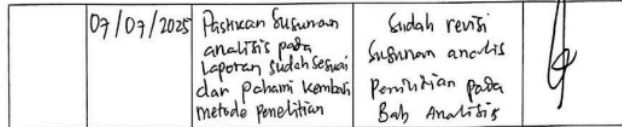 07/07/2025
Pastikan Susunan
analisis pada
Laporan sudah sesuai
dan pahami kembali
metode penelitian
Sudah revisi
Susunan analis
Penelitian pada
Bab Analisis